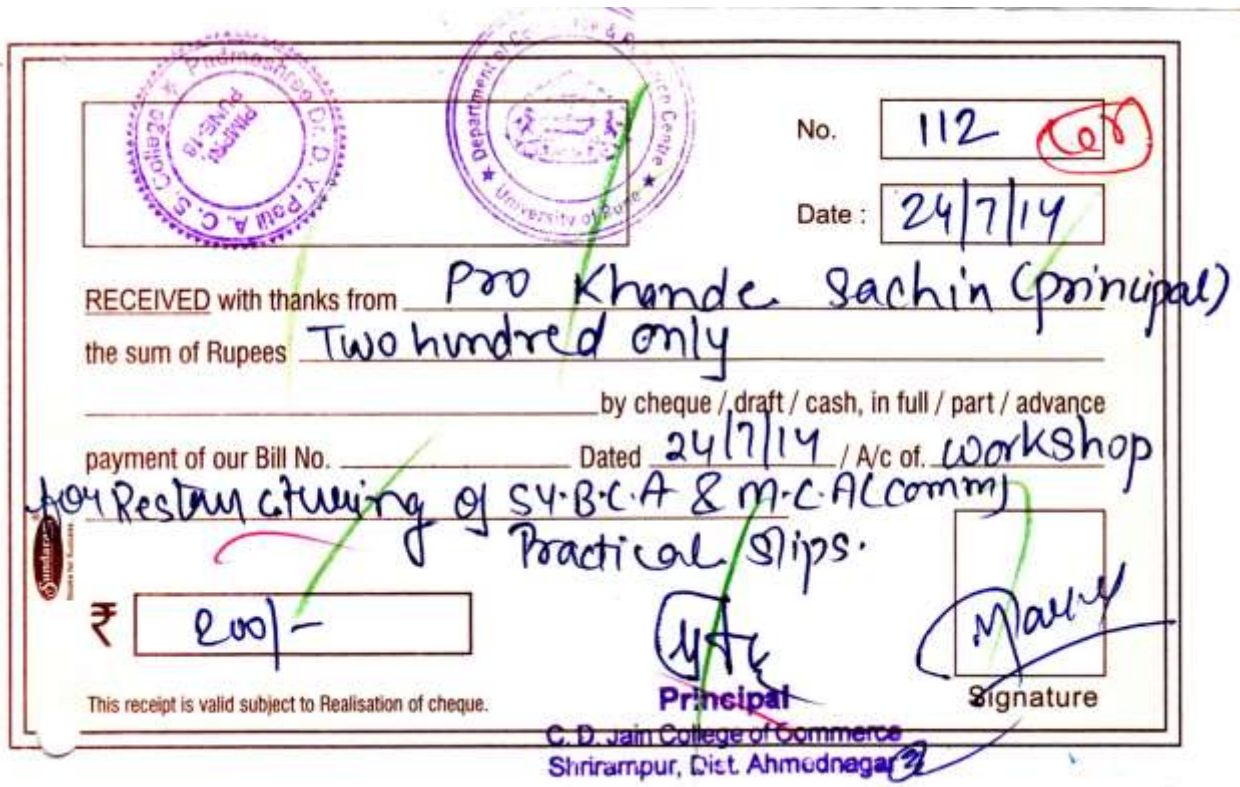 Padmashree Dr. D. Y. Patil A. C. S. College
PIMPRI,
PUNE-18
Department of Co & Centre
University of Pune
No. 112
Date : 24/7/14
RECEIVED with thanks from Pro Khande Sachin (principal)
the sum of Rupees Two hundred only
by cheque / draft / cash, in full / part / advance
payment of our Bill No. Dated 24/7/14 / A/c of. workshop
for Restructuring of S.Y.B.C.A & M.C.A (comm)
Practical Slips.
Sundaram
₹ 200/-
This receipt is valid subject to Realisation of cheque.
Signature
Principal
C. D. Jain College of Commerce
Shrirampur, Dist. Ahmednagar